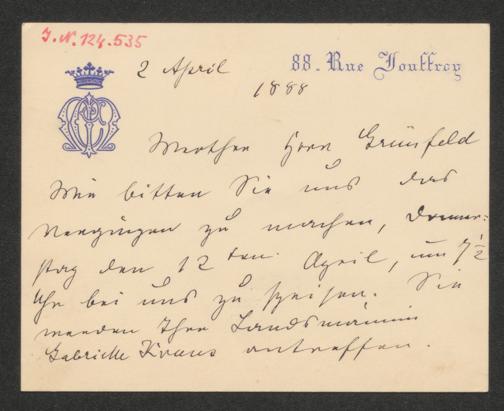 I.N. 124.535
88. Rue Jouffroy
2 April
1888
Werther Herr Grünfeld
Wir bitten Sie uns das
Vergnügen zu machen, Donner-
stag den 12ten April, um 7 1/2
Uhr bei uns zu speisen. Sie
werden Ihre Landsmännin
Gabrielle Kraus antreffen.